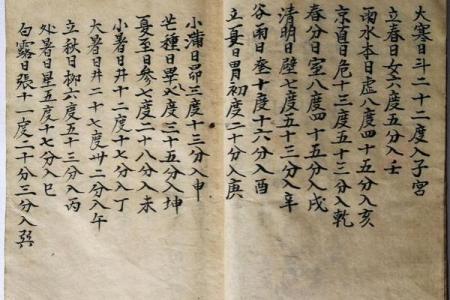 大寒日斗二十二度入子宮
立春日女六度五分入壬
雨水本日虛八度四十五分入亥
京直日危十三度五十三分入乾
春分日室八度四十五分入戌
清明日壁七度五十三分入辛
谷雨日奎十度十六分入酉
立夏日胃初度二十分入庚
小蒲日昴三度十三分入申
芒種日畢八度三十五分入坤
夏至日參七度二十八分入未
小暑日井十二度十七分入丁
大暑日井二十七度卅二分入午
立秋日柳六度五十三分入丙
处暑日星五度十七分入巳
白露日張十一度二十三分入巽